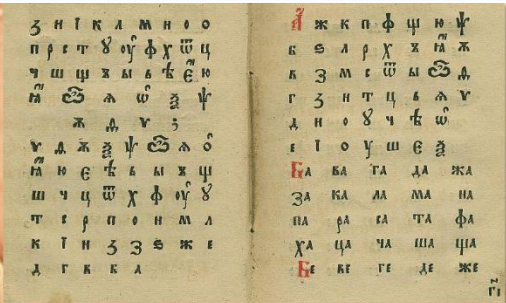 ꙁ и ї к л м н о ѻ
п р с т ꙋ оу ф х ѿ ц
ч ш щ ъ ы ь ѣ є ю
ꙗ ѽ ѧ ѡ ѯ ѱ
ѫ ѳ ѵ ;
ѵ ѳ ѫ ѯ ѱ ѽ ѧ ѻ
ꙗ ю є ѣ ь ы ъ щ
ш ч ц ѿ х ф оу ꙋ
т с р п о н м л
к ї и ꙁ з ѕ ж е
д г в б а
А ж к п ф щ ю ѱ
б ѕ л р х ъ ꙗ ѫ
в з м с ѿ ы ѽ ѳ
г ꙁ н т ц ь ѧ ѵ
д и о ꙋ ч ѣ ѡ
е ї ѻ оу ш є ѯ
Ба ва га да жа
за ка ла ма на
па ра са та фа
ха ца ча ша ща
Бе ве ге де же